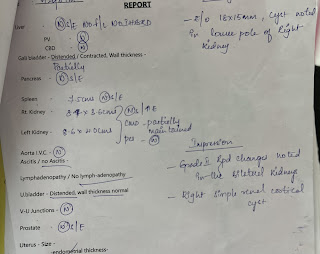 REPORT
Liver - (N) S/E No f/L No IHBRD
PV - (N)
CBD - (N)
Gall bladder - Distended / Contracted, Wall thickness -
Partially
Pancreas - (N) S/E
Spleen - 7.5cms (N) S/E
Rt. Kidney -
Left Kidney -
CMD - partially
maintained
PCS - (N)
Aorta I.V.C - (N)
Ascitis / no Ascitis -
Lymphadenopathy / No lymph-adenopathy
U.bladder - Distended, wall thickness normal
V-U Junctions - (N)
Prostate - (N) S/E
Uterus - Size -
-endometrial thickness-
- e/o 18x15mm, cyst noted
in lower pole of Right
Kidney.
Impression
- Grade II Rpd changes noted
in the bilateral Kidneys
- Right simple renal cortical
cyst